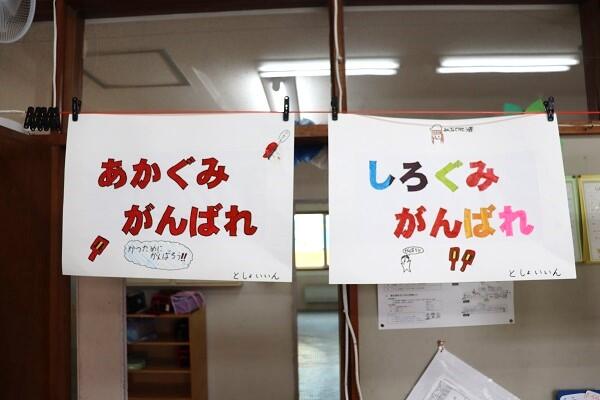 あかぐみ
がんばれ
かつために
がんばろう!!
としょいいん
しろぐみ
がんばれ
としょいいん